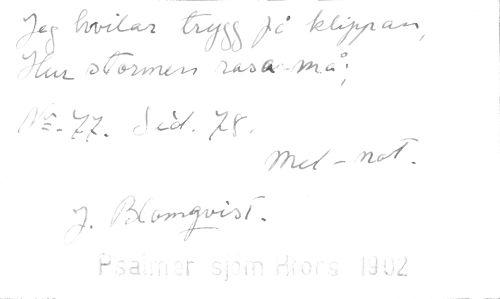 Jeg hvilar trygg på klippan,
Hur stormen rasa må;
No. 77. Sid. 78.
Mel-not.
J. Blomqvist.
Psalmer sjom Hfors 1902